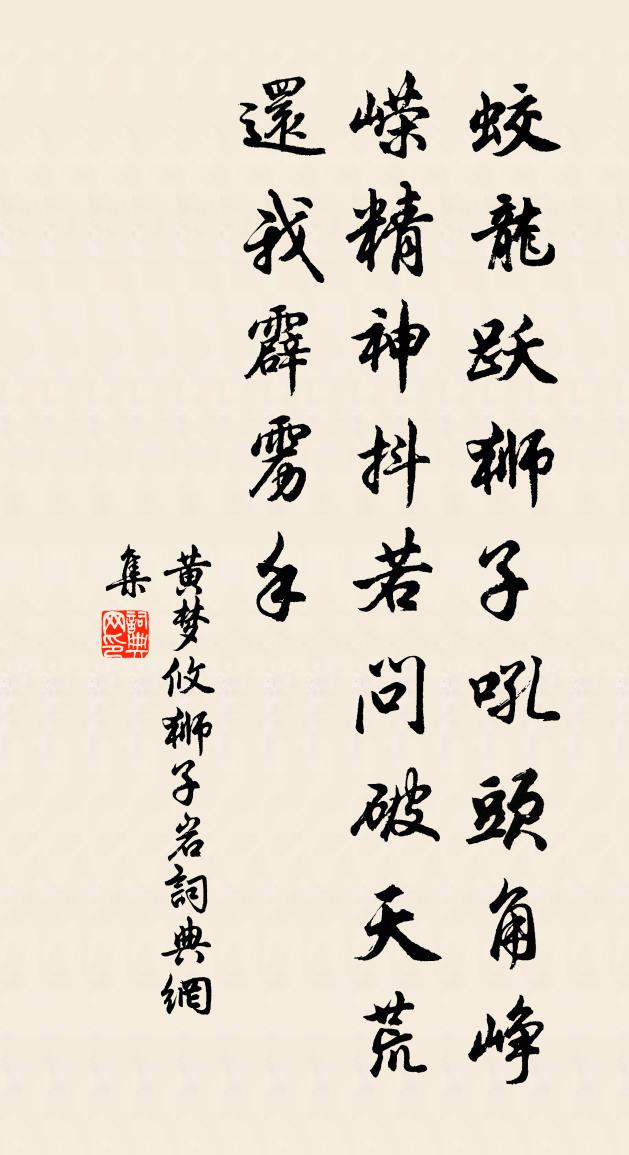 蛟龍跃狮子吼頭角峥
嵘精神抖若問破天荒
還我霹雳手
黄梦攸狮子岩詞典網
集
詞典
网印